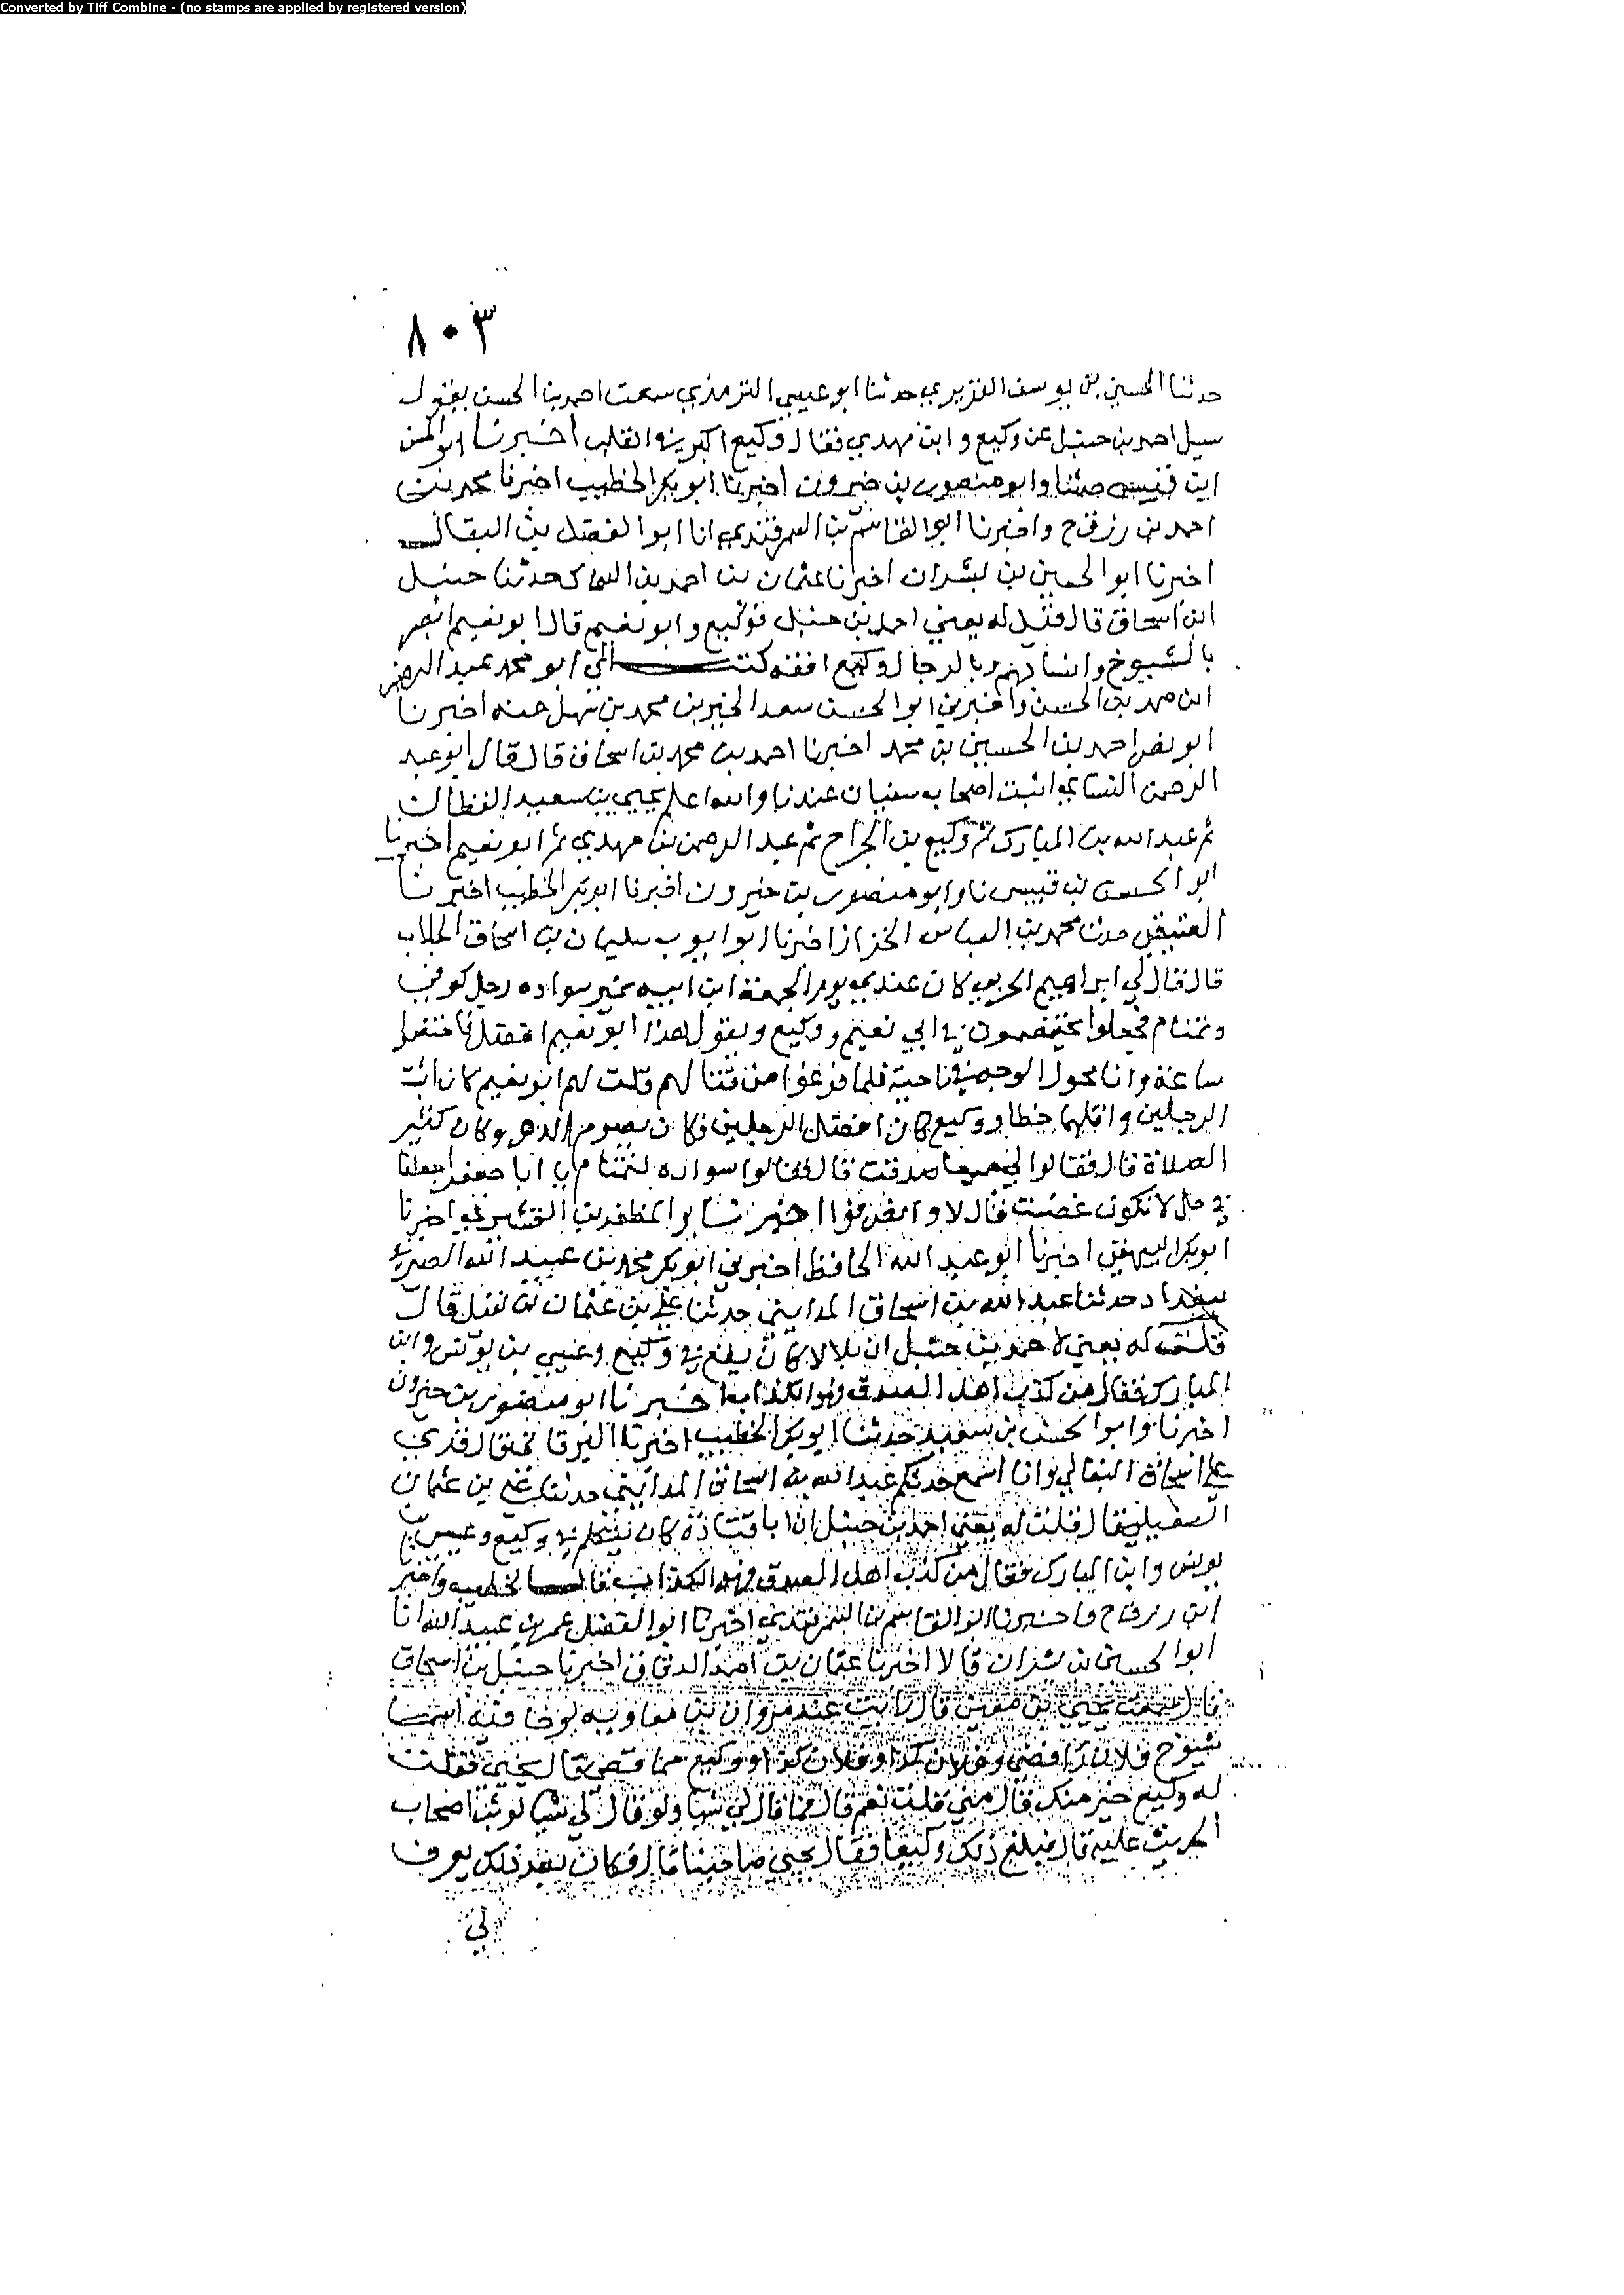 Converted by Tiff Combine - (no stamps are applied by registered version)
٨٠٣
حدثنا الحسين بن يوسف الفزيري حدثنا ابو عيسى الترمذي سمعت احمد بن الحسن يقول
سيل احمد بن حنبل عن وكيع وابن مهدي فقال وكيع اكبر في القلب اخبرنا ابو الحسن
ابن قبيس حدثنا وابو منصور بن خيرون اخبرنا ابو بكر الخطيب اخبرنا محمد بن
احمد بن رزق ح واخبرنا ابو القاسم بن السمرقندي انا ابو الفضل بن البقال
اخبرنا ابو الحسين بن بشران اخبرنا عثمان بن احمد بن السماك حدثنا حنبل
ابن اسحاق قال قيل له يعني احمد بن حنبل فوكيع وابو نعيم قال ابو نعيم ابصر
بالشيوخ وانسابهم وبالرجال وكيع افقه كتب الي ابو محمد عبد الرحمن
ابن حمد بن الحسن واخبرني ابو الحسن سعد الخير بن محمد بن سهل عنه اخبرنا
ابو نصر احمد بن الحسين بن محمد اخبرنا احمد بن محمد بن اسحاق قال قال ابو عبد
الرحمن النساي اثبت اصحاب سفيان عندنا والله اعلم يحيى بن سعيد القطان
ثم عبد الله بن المبارك ثم وكيع بن الجراح ثم عبد الرحمن بن مهدي ثم ابو نعيم اخبرنا
ابو الحسن بن قبيس نا وابو منصور بن خيرون اخبرنا ابو بكر الخطيب اخبرنا
العتيقي حدثنا محمد بن العباس الخزاز اخبرنا ابو ايوب سليمان بن اسحاق الجلاب
قال قال لي ابراهيم الحربي كان عندي يوم الجمعة ابن ابيه سواده رجل كوفي
وتمتام فجعلوا يختصمون في ابي نعيم ووكيع ويقول هذا ابو نعيم افضل فاختصموا
ساعة وانا محول الوجه في ناحية فلما فرغوا من قتالهم قلت لهم ابو نعيم كان اثبت
الرجلين واقلهما خطا ووكيع كان افضل الرجلين فكان يصوم الدهر وكان كثير
الصلاة قال فقالوا لي جميعا صدقت قال فقالوا سواده لتمتام يا ابا جعفر اجعلنا
في حل لا تكون غضبت قال لا وانصرفوا اخبرنا ابو المظفر بن القشيري اخبرنا
ابو بكر البيهقي اخبرنا ابو عبد الله الحافظ اخبرني ابو بكر محمد بن عبيد الله
ببغداد حدثنا عبد الله بن اسحاق المدايني حدثنا علي بن عثمان بن نفيل قال
قلت له يعني لاحمد بن حنبل ان بلالا كان يقع في وكيع وعيسى بن يونس وابن
المبارك فقال من كذب اهل الصدق فهو الكذاب اخبرنا ابو منصور بن خيرون
اخبرنا وابو الحسن بن سعيد حدثنا ابو بكر الخطيب اخبرنا البرقاني قال قرئ
على اسحاق النعالي وانا اسمع حدثكم عبد الله بن اسحاق المدايني حدثنا علي بن عثمان
النفيلي قال قلت له يعني احمد بن حنبل ان ابا قتادة كان يتكلم في وكيع وعيسى بن
يونس وابن المبارك فقال من كذب اهل الصدق فهو الكذاب قال الخطيب واخبرنا
ابن رزق ح واخبرنا ابو القاسم بن السمرقندي اخبرنا ابو الفضل عمر بن عبيد الله انا
ابو الحسين بن بشران قالا اخبرنا عثمان بن احمد الدقاق اخبرنا حنبل بن اسحاق
قال سمعت يحيى بن معين قال رايت عند مروان بن معاويه لوحا فيه اسما
شيوخ فلان رافضي وفلان كذا وفلان كذا ووكيع قال يحيى فقلت
له وكيع خير منك قال مني قلت نعم قال فما قال لي شيا ولو قال لي شيا لوثب اصحاب
الحديث عليه قال فبلغ ذلك وكيعا فقال يحيى صاحبنا قال فكان بعد ذلك يعرف
لي